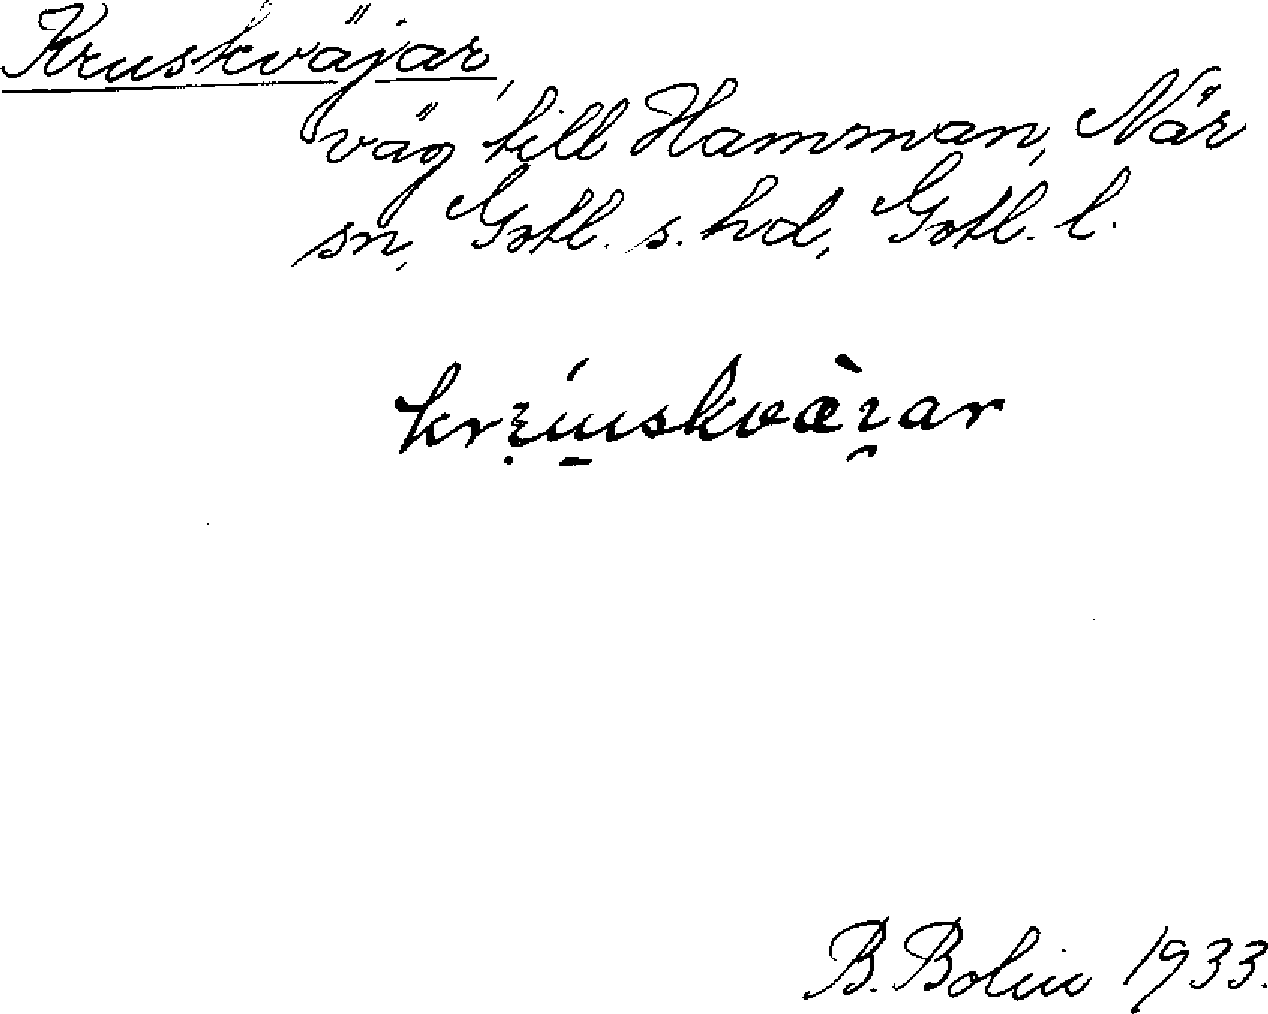 Kruskväjar,
väg till Hamman, När
sn, Gotl. s. hd, Gotl. l.
B. Bolin 1933.